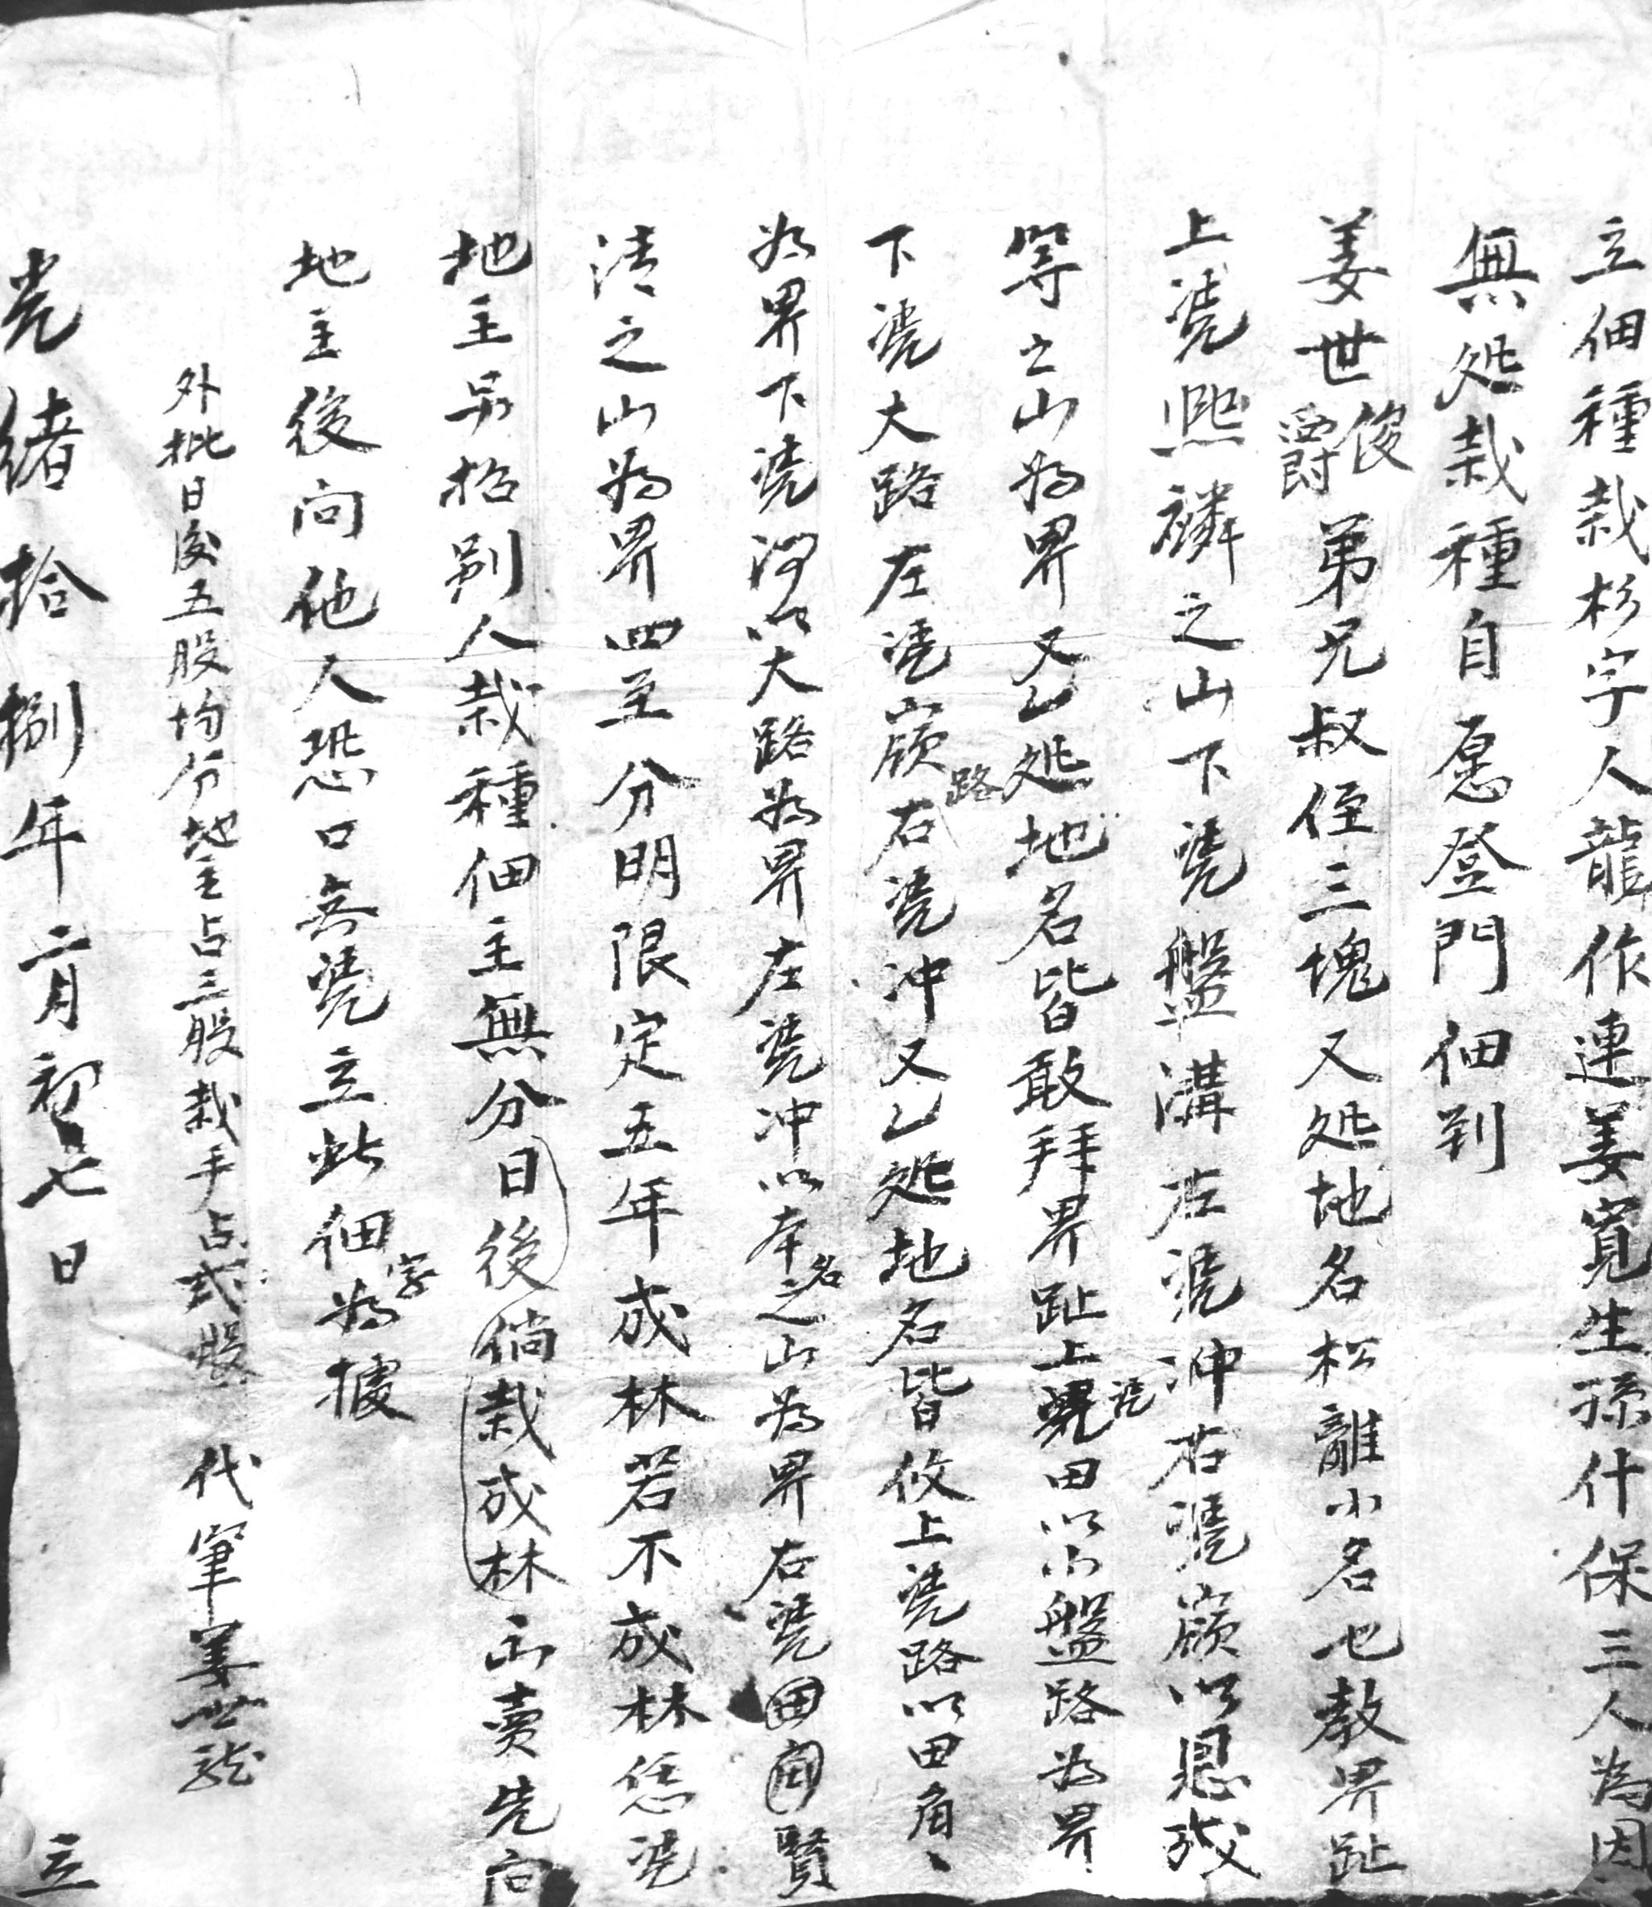 立佃種栽杉字人龍作連姜寬生孫什保三人為因
無処栽種自愿登門佃到
姜世俊爵弟兄叔侄三塊又処地名松離小名也教界趾
上凴熙麟之山下凴盤溝左凴冲右凴嶺以恩成
等之山為界又乙処地名皆敢拜界趾上凴田以小盤路為界
下凴大路左凴嶺路右凴冲又乙処地名皆攸上凴路以田角
為界下凴河以大路為界左凴冲以本名之山為界右凴田角賢
清之山為界四至分明限定五年成林若不成林恁凴
地主另招别人栽種佃主無分日後倘栽成林出賣先向
地主後向他人恐口無凴立此佃字為據
外批日後五股均分地主占三股栽手占弍股 代筆姜世龍
光緒拾捌年二月初七日 立